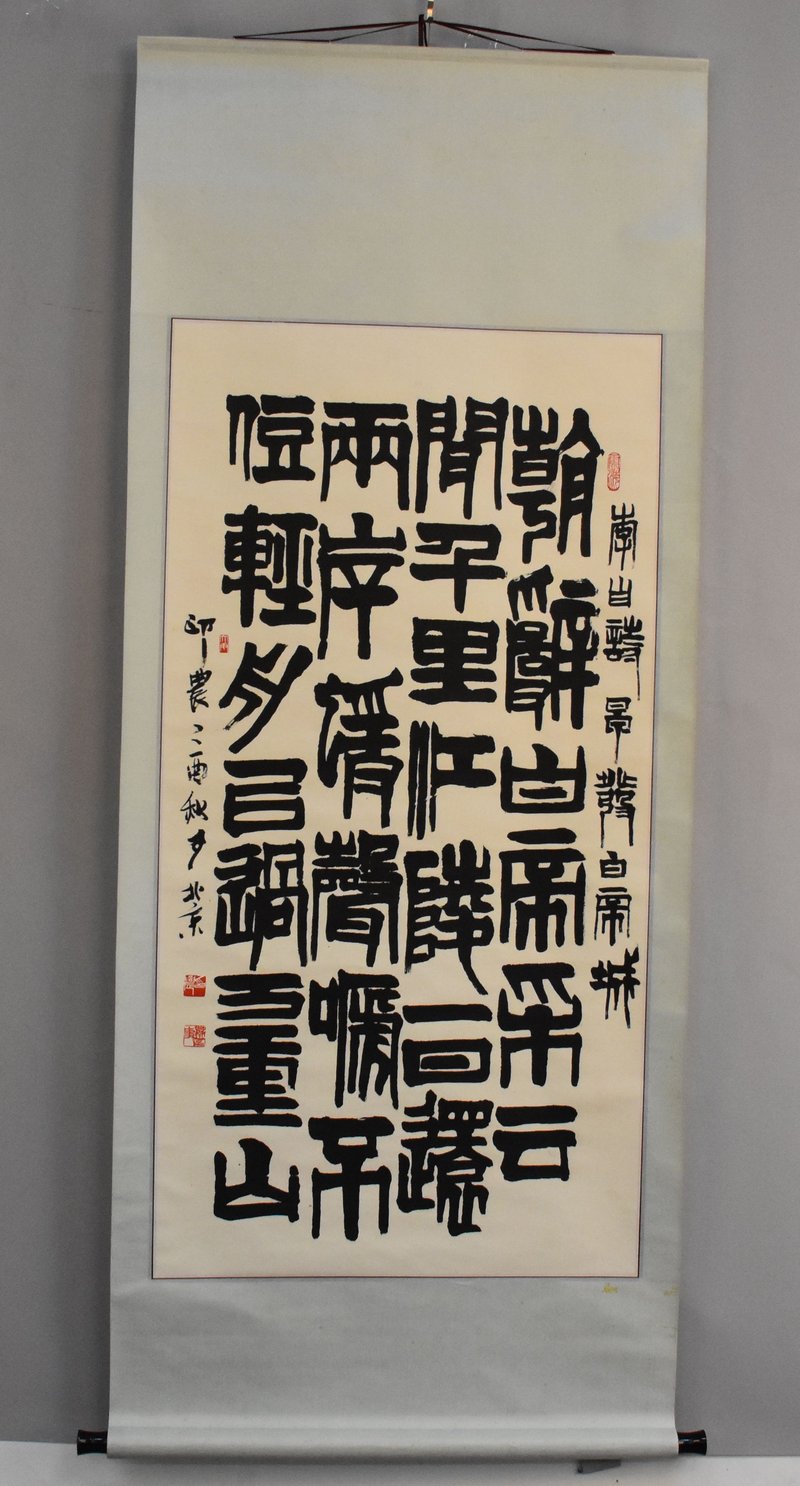 李白詩 早發白帝城
朝辭白帝采云
閒千里江陵一日還
兩岸猿聲嗁不
住輕舟已過万重山
農乙酉秋于北京